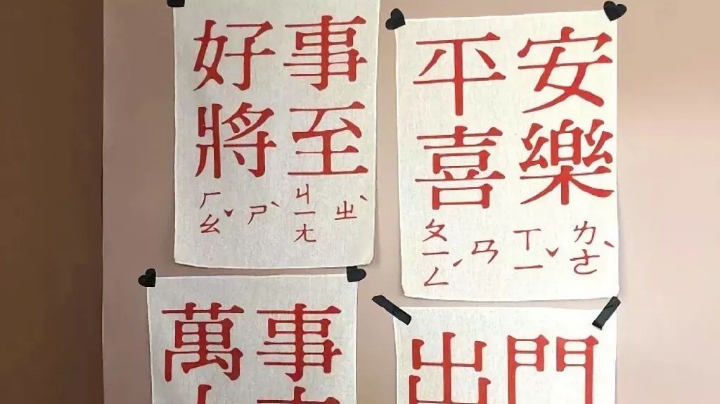 好事
將至
ㄏㄠˇ ㄕˋ ㄐㄧㄤ ㄓˋ
平安
喜樂
ㄆㄧㄥˊ ㄢ ㄒㄧˇ ㄌㄜˋ
萬事
出門